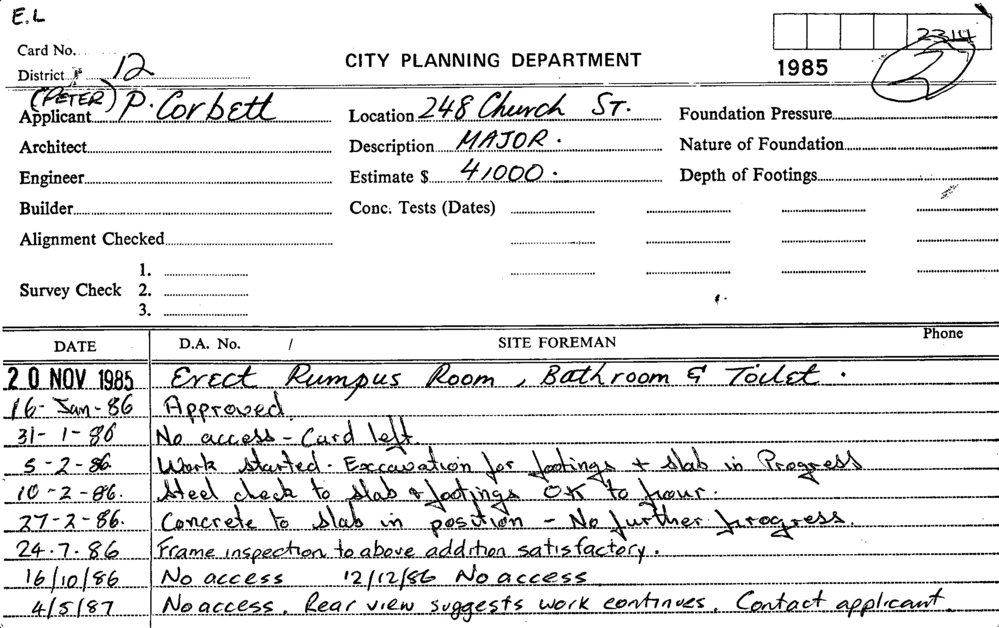 E.L
2314
Card No.
District 12
CITY PLANNING DEPARTMENT
1985
2
(PETER)
Applicant P. Corbett
Location 248 Church ST.
Foundation Pressure
Architect
Description MAJOR.
Nature of Foundation
Engineer
Estimate $ 41000.
Depth of Footings
Builder
Conc. Tests (Dates)
Alignment Checked
Survey Check 1.
2.
3.
DATE D.A. No. / SITE FOREMAN Phone
20 NOV 1985 Erect Rumpus Room, Bathroom & Toilet.
16-Jan-86 Approved
31-1-86 No access - Card left
5-2-86 Work started. Exccavation for footings + slab in Progress
10-2-86. Steel check to slab & footings OK to pour.
27-2-86. Concrete to slab in position - No further progress.
24.7.86 Frame inspection to above addition satisfactory.
16/10/86 No access 12/12/86 No access
4/5/87 No access. Rear view suggests work continues. Contact applicant.